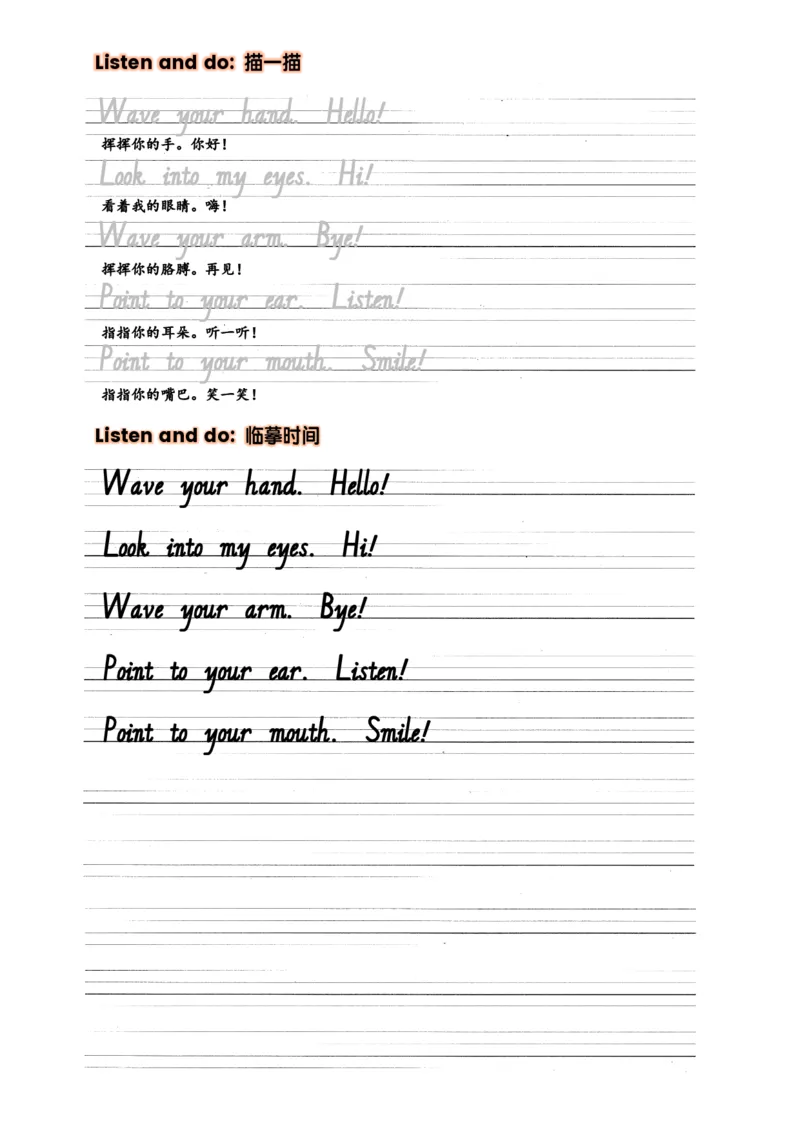 Listen and do: 描一描
Wave your hand. Hello!
挥挥你的手。你好！
Look into my eyes. Hi!
看着我的眼睛。嗨！
Wave your arm. Bye!
挥挥你的胳膊。再见！
Point to your ear. Listen!
指指你的耳朵。听一听！
Point to your mouth. Smile!
指指你的嘴巴。笑一笑！
Listen and do: 临摹时间
Wave your hand. Hello!
Look into my eyes. Hi!
Wave your arm. Bye!
Point to your ear. Listen!
Point to your mouth. Smile!